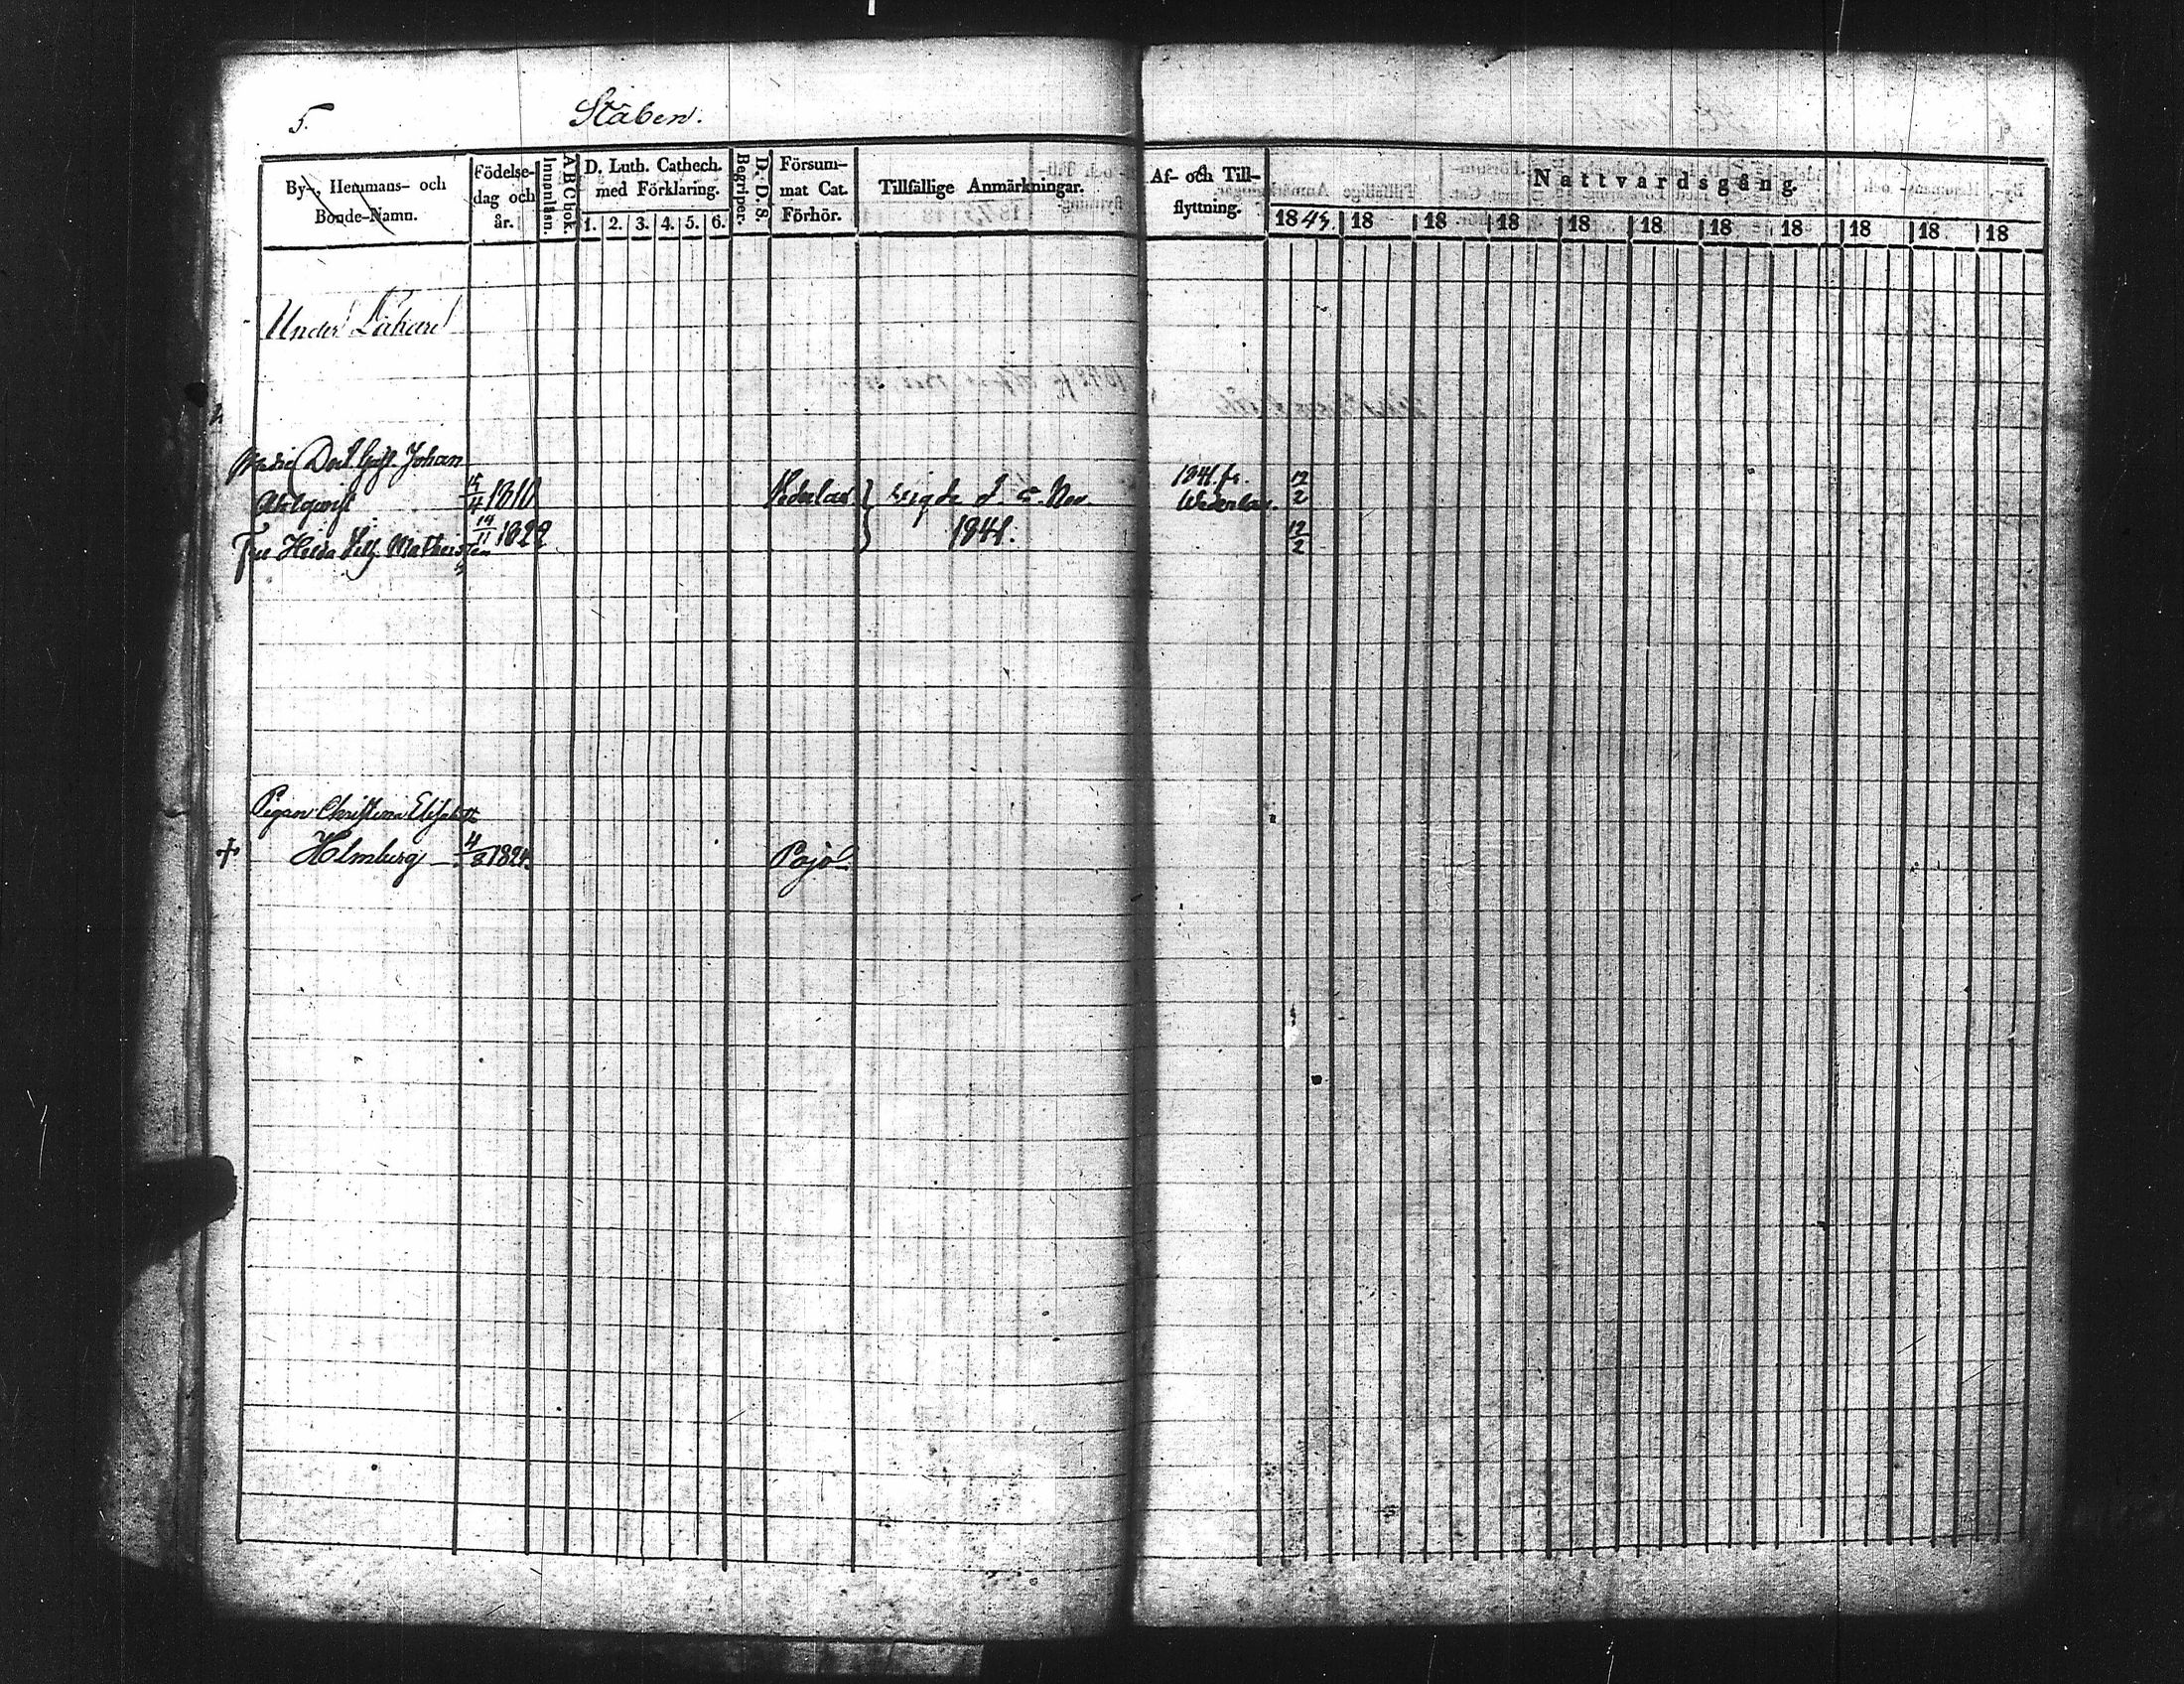 5.
Ståben.
By-, Hemmans- och Bonde-Namn.
Födelse-dag och år.
Innanläsn.
A B C bok.
D. Luth. Cathech. med Förklaring.
1. 2. 3. 4. 5. 6.
Begriper.
D. D. S.
Försum-mat Cat. Förhör.
Tillfällige Anmärkningar.
Af- och Till-flyttning.
Nattvardsgång.
1843 18 18 18 18 18 18 18 18 18 18
Under Läkare
Medic Doct Gust. Johan
Ahlqwist 15/4 1810 Wederlax } vigde d 5 Nov. 1841 fr. Wederlax. 12/2
Fru Hedda 14/11 1822 1841. 12/2
Pigan Christina Elisabeth
+ Holmberg 4/8 1824. Pojo